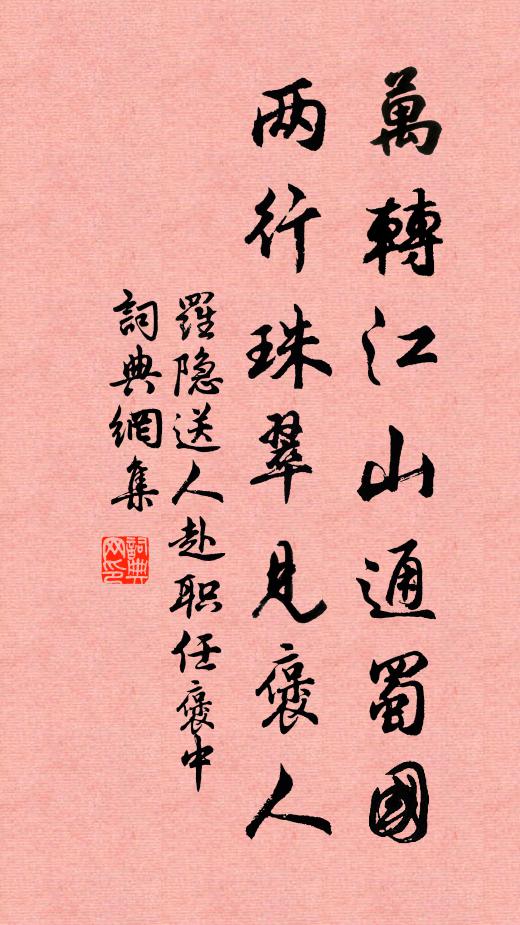 萬轉江山通蜀國
两行珠翠見褒人
羅隐送人赴职任褒中
詞典網集
詞典网印